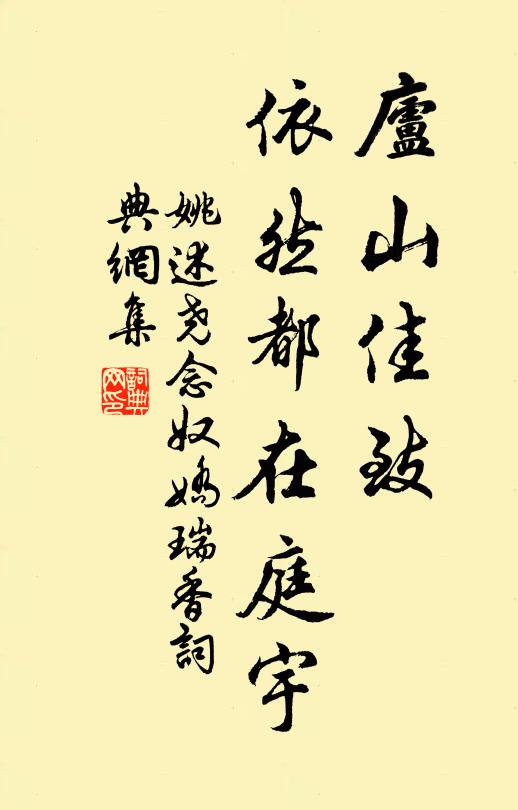 廬山佳致
依然都在庭宇
姚述堯念奴嬌瑞香詞
典網集
詞典
网印